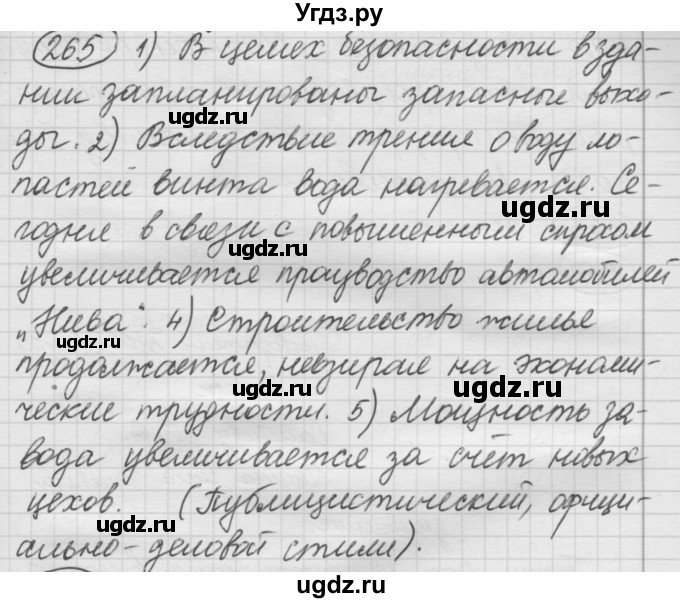 Угдз.ру
265 1) В целях безопасности в зда-
нии запланированы запасные выхо-
ды. 2) Вследствие трения о воду ло-
пастей винта вода нагревается. Се-
годня в связи с повышенным спросом
увеличивается производство автомобилей
„Нива“. 4) Строительство жилья
продолжается, невзирая на экономи-
ческие трудности. 5) Мощность за-
вода увеличивается за счёт новых
цехов. (Публицистический, офици-
ально-деловой стили).
ugdz.ru
ugdz.ru
ugdz.ru
ugdz.ru
ugdz.ru
ugdz.ru
ugdz.ru
ugdz.ru
ugdz.ru